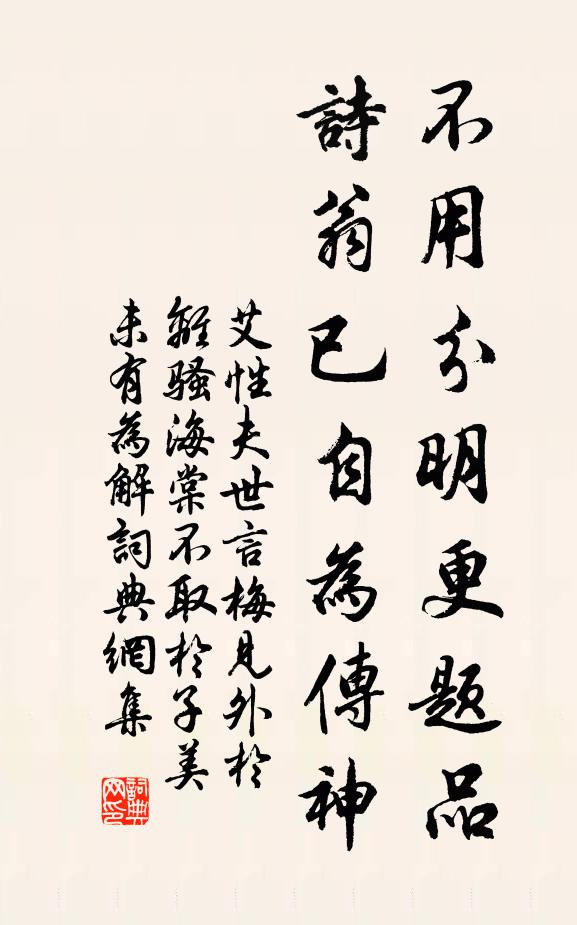 不用分明更題品
詩翁已自為傳神
艾性夫世言梅見外於
離騷海棠不取於子美
未有為解詞典網集
詞典
网印